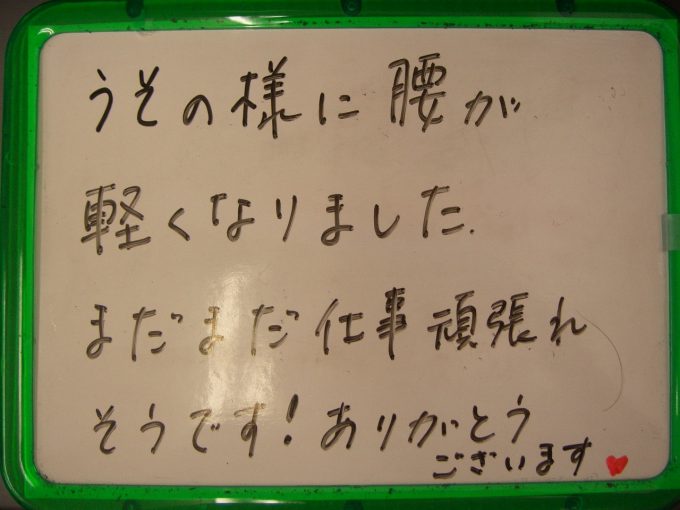 うその様に腰が
軽くなりました.
まだまだ仕事頑張れ
そうです!ありがとう
ございます♥